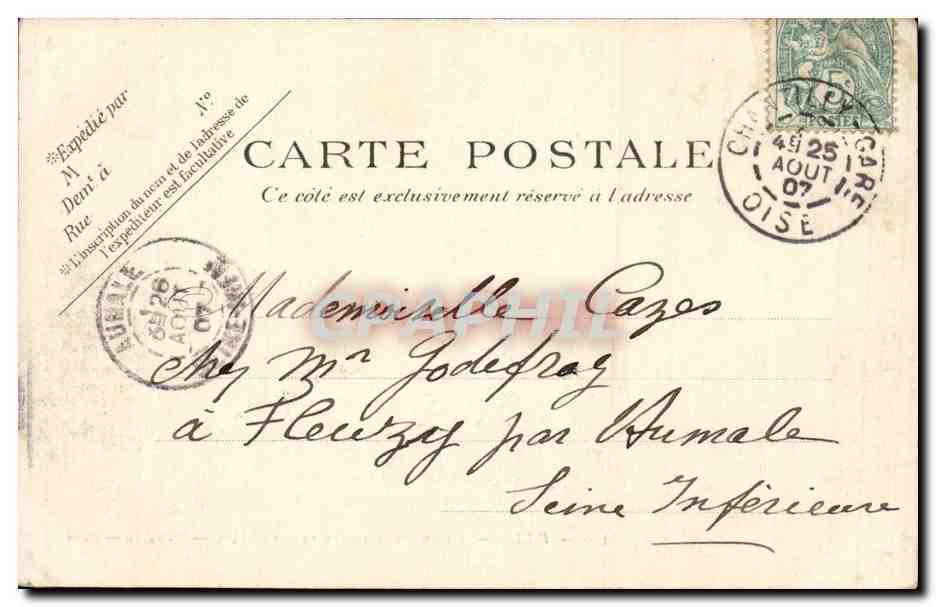 *Expédié par
M
Demt à
Rue
No
*L'inscription du nom et de l'adresse de
l'expéditeur est facultative
CARTE POSTALE
Ce côté est exclusivement réservé a l'adresse
5c
POSTES
CHANTILLY GARE
4E 25
AOUT
07
OISE
AUMALE
26
AOUT
07
Mademoiselle Cazes
chez Mr Godefroy
à Fleuzy par Aumale
Seine Inférieure
CPAPHIL